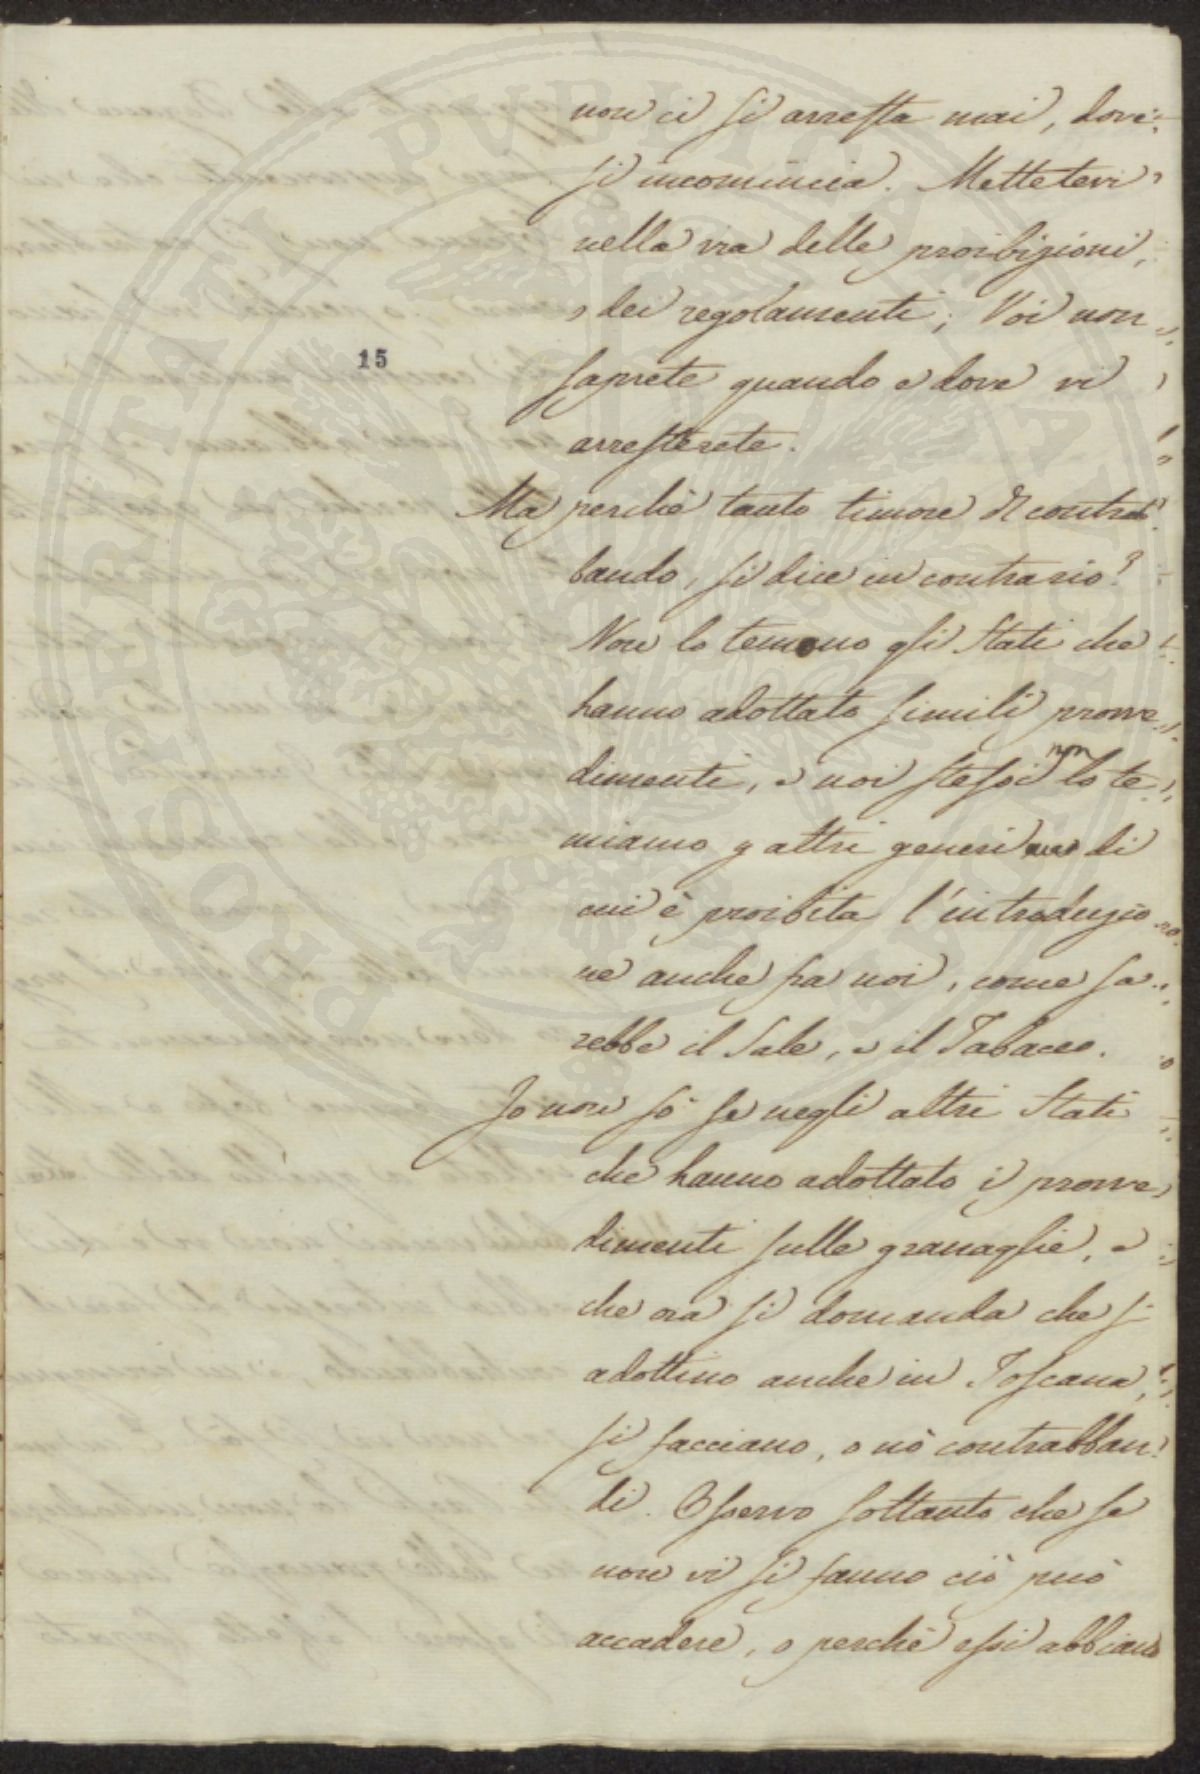 non ci si arresta mai, dove
si incomincia. Mettetevi
nella via delle proibizioni,
e dei regolamenti; Voi non
15
saprete quando e dove vi
arresterete.
Ma perchè tanto timore di contrab
bando, si dice in contrario?
Non lo temono gli Stati che
hanno adottato simili provve
dimenti, e noi stessi non lo te
miamo p altri generi di
cui è proibita l'introduzio
ne anche fra noi, come sa
rebbe il Sale, e il Tabacco.
Io non sò se negli altri Stati
che hanno adottato i provve
dimenti sulle granaglie, e
che ora si domanda che si
adottino anche in Toscana,
si facciano, o nò contrabban
di. Osservo soltanto che se
non vi si fanno ciò può
accadere, o perchè essi abbiano
PROSPERITATI PUBLICAE AUGENDAE